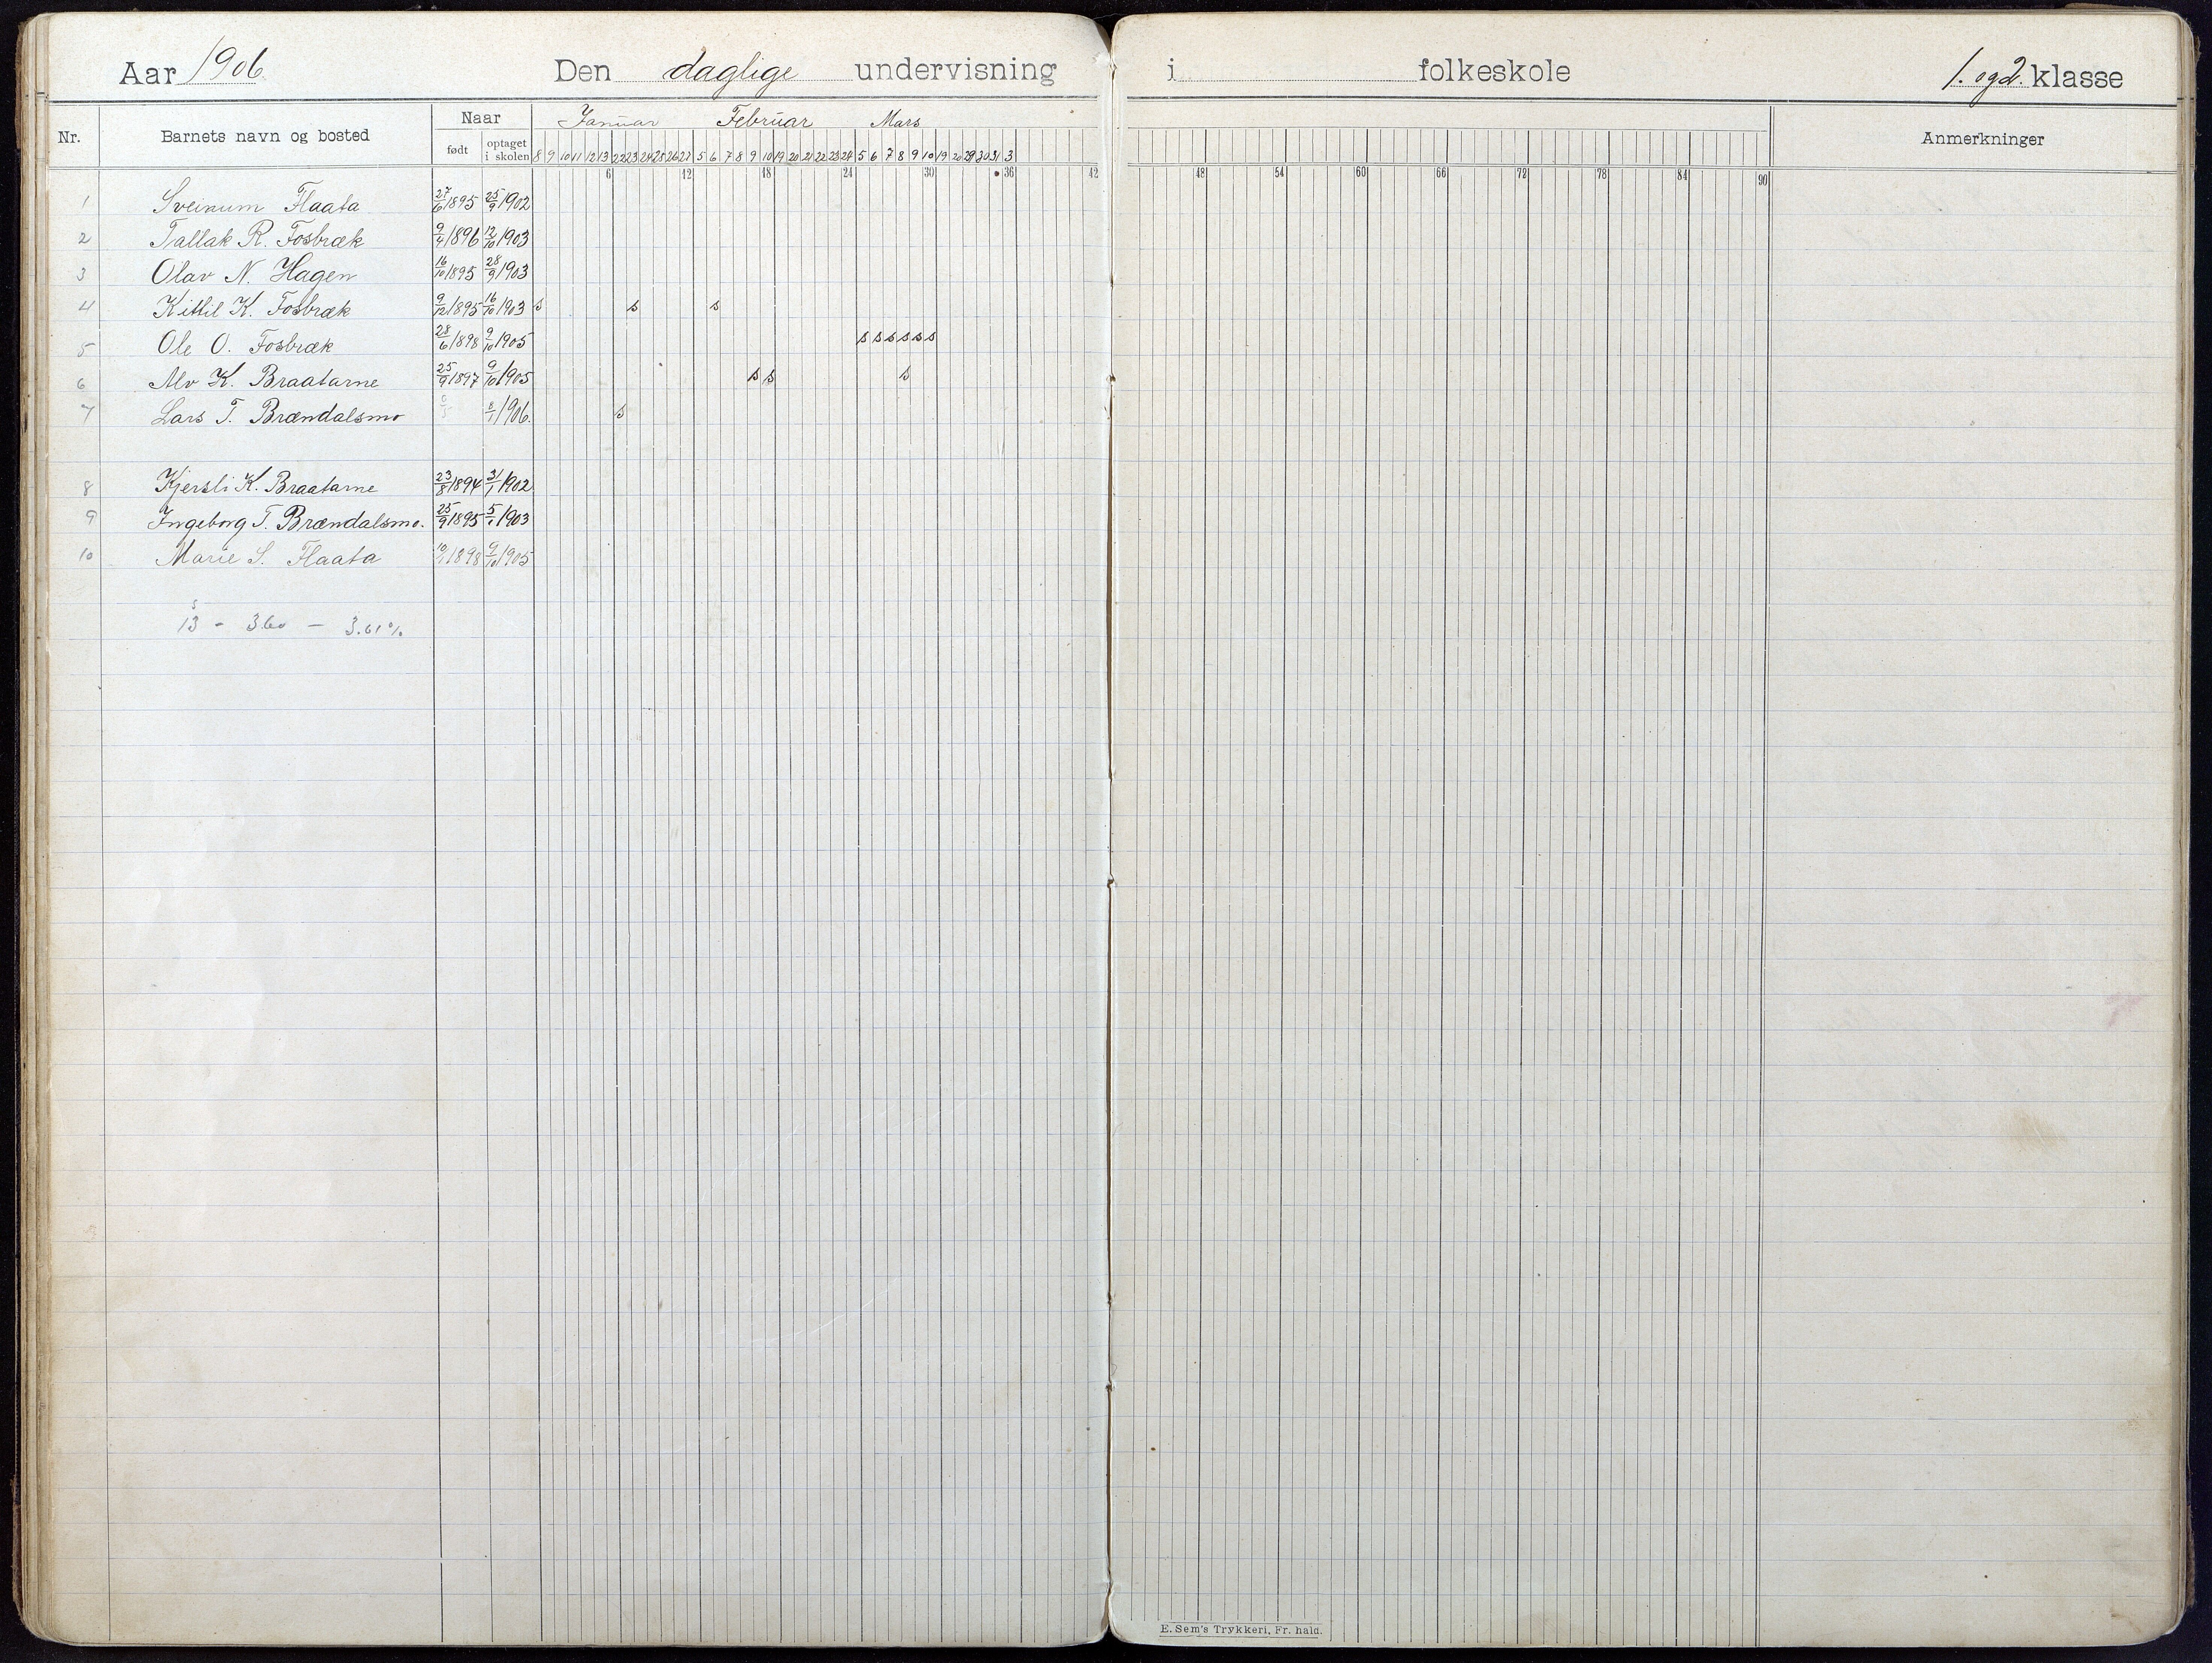 Aar 1906. Den daglige undervisning i folkeskole 1. og 2. klasse
Nr. Barnets navn og bosted Naar Januar Februar Mars Anmerkninger
født optaget i skolen 8 9 10 11 12 13 22 23 24 25 26 27 5 6 7 8 9 10 19 20 21 22 23 24 5 6 7 8 9 10 19 20 29 30 31 3
6 12 18 24 30 36 42 48 54 60 66 72 78 84 90
1 Sveinum Flaata 27/6 1895 25/9 1902
2 Tallak R. Fosbræk 9/4 1896 12/10 1903
3 Olav N. Hagen 16/10 1895 28/9 1903
4 Kittil K. Fosbræk 9/12 1895 16/10 1903 s s s
5 Ole O. Fosbræk 28/6 1898 9/10 1905 s s s s s s
6 Alv K. Braatarne 25/9 1897 9/10 1905 s s s
7 Lars T. Brændalsmo 8/1 1906. s
8 Kjersti K. Braatarne 23/8 1894 3/1 1902
9 Ingeborg T. Brændalsmo. 25/9 1895 5/1 1903
10 Marie S. Flaata 1898 9/10 1905
s
13 - 360 - 3.61%
E. Sem's Trykkeri, Fr. hald.